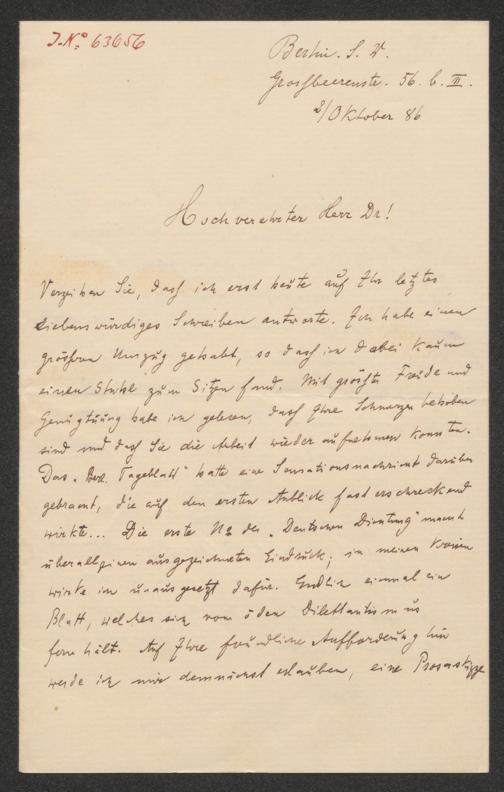 J.N: 63656
Berlin. S. W.
Grossbeerenstr. 56. b. II.
2/Oktober 86
Hochverehrter Herr Dr!
Verzeihen Sie, dass ich erst heute auf Ihr letztes
liebenswürdiges Schreiben antworte. Ich habe einen
grösseren Umzug gehabt, so dass ich dabei kaum
einen Stuhl zum Sitzen fand. Mit grösster Freude und
Genugtuung habe ich gelesen, dass Ihre Schmerzen behoben
sind und dass Sie die Arbeit wieder aufnehmen konnten.
Das „Berl. Tageblatt" hatte eine Sensationsnachricht darüber
gebracht, die auf den ersten Anblick fast erschreckend
wirkte... Die erste No der „Deutschen Dichtung" macht
überall einen ausgezeichneten Eindruck; in meinen Kreisen
wirke ich unausgesetzt dafür. Endlich einmal ein
Blatt, welches sich vom öden Dilettantismus
fern hält. Auf Ihre freundliche Aufforderung hin
werde ich mir demnächst erlauben, eine Prosaskizze